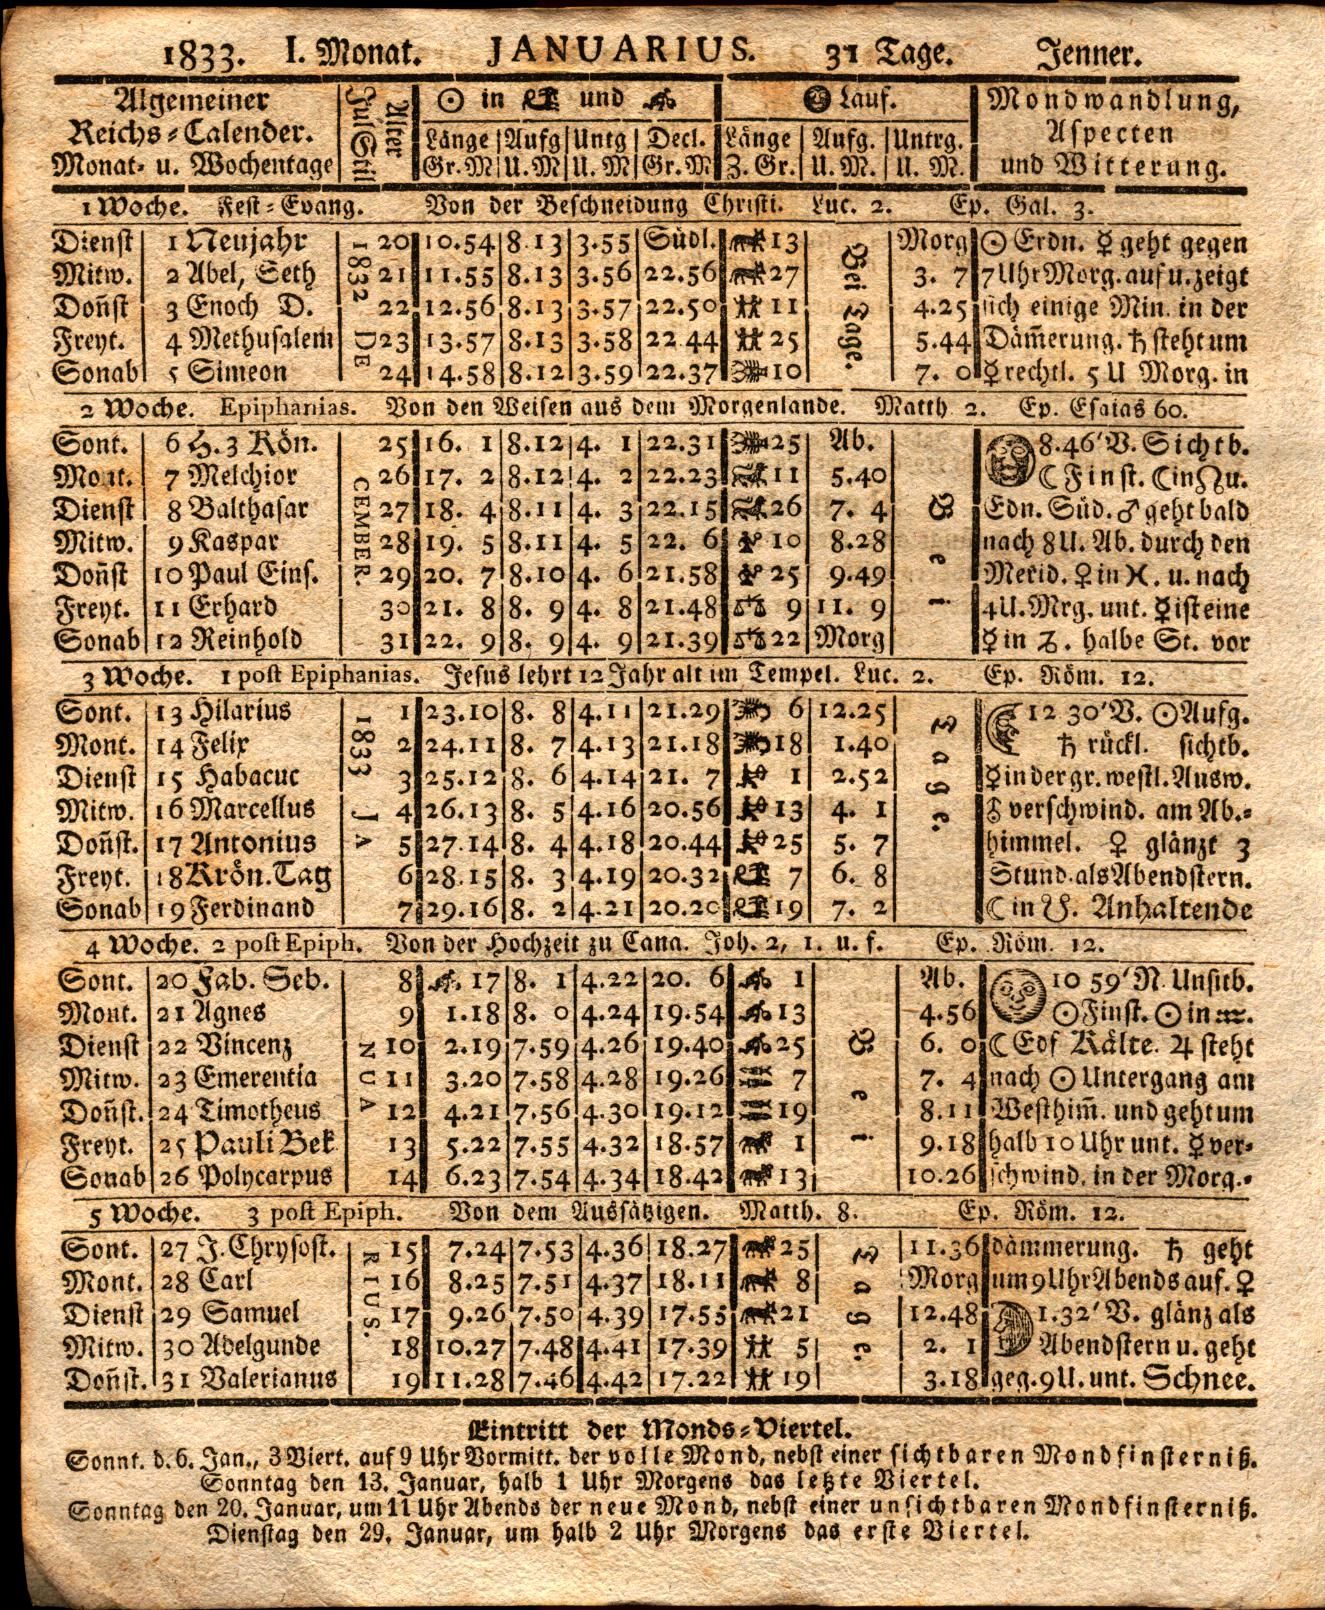 1833. I. Monat. JANUARIUS. 31 Tage. Jenner.
Algemeiner Reichs-Calender. Monat- u. Wochentage | Alter Jul Stil | ☉ in ♑ und ♒ | Lauf. | Mondwandlung, Aspecten und Witterung.
Länge | Aufg | Untg | Decl. | Länge | Aufg. | Untrg.
Gr.M | U.M | U.M | Gr.M | Z.Gr. | U.M. | U.M.
1 Woche. Fest-Evang. Von der Beschneidung Christi. Luc. 2. Ep. Gal. 3.
Dienst 1 Neujahr 1832 20 10.54 8.13 3.55 Südl. ♉ 13 Bei Tage. Morg ☉ Erdn. ☿ geht gegen
Mitw. 2 Abel, Seth 21 11.55 8.13 3.56 22.56 ♉ 27 3. 7 7 Uhr Morg. auf u. zeigt
Don̄st 3 Enoch D. 22 12.56 8.13 3.57 22.50 ♊ 11 4.25 sich einige Min. in der
Freyt. 4 Methusalem DE 23 13.57 8.13 3.58 22 44 ♊ 25 5.44 Däm̄erung. ♄ steht um
Sonab 5 Simeon 24 14.58 8.12 3.59 22.37 ♋ 10 7. 0 ☿ rechtl. 5 U Morg. in
2 Woche. Epiphanias. Von den Weisen aus dem Morgenlande. Matth 2. Ep. Esaias 60.
Sont. 6 H. 3 Kön. 25 16. 1 8.12 4. 1 22.31 ♋ 25 Ab. 8.46' V. Sichtb.
Mont. 7 Melchior CEMBER. 26 17. 2 8.12 4. 2 22.23 ♌ 11 5.40 ☾ Finst. ☾ in ☊ u.
Dienst 8 Balthasar 27 18. 4 8.11 4. 3 22.15 ♌ 26 7. 4 Bei Edn. Süd. ♂ geht bald
Mitw. 9 Kaspar 28 19. 5 8.11 4. 5 22. 6 ♍ 10 8.28 nach 8 U. Ab. durch den
Don̄st 10 Paul Eins. 29 20. 7 8.10 4. 6 21.58 ♍ 25 9.49 Merid. ♀ in ♓. u. nach
Freyt. 11 Erhard 30 21. 8 8. 9 4. 8 21.48 ♎ 9 11. 9 4 U. Mrg. unt. ☿ ist eine
Sonab 12 Reinhold 31 22. 9 8. 9 4. 9 21.39 ♎ 22 Morg ☿ in ♑. halbe St. vor
3 Woche. 1 post Epiphanias. Jesus lehrt 12 Jahr alt im Tempel. Luc. 2. Ep. Röm. 12.
Sont. 13 Hilarius 1833 1 23.10 8. 8 4.11 21.29 ♏ 6 12.25 Tage. 12 30' V. ☉ Aufg.
Mont. 14 Felix 2 24.11 8. 7 4.13 21.18 ♏ 18 1.40 ♄ rückl. sichtb.
Dienst 15 Habacuc 3 25.12 8. 6 4.14 21. 7 ♐ 1 2.52 ☿ in der gr. westl. Ausw.
Mitw. 16 Marcellus JA 4 26.13 8. 5 4.16 20.56 ♐ 13 4. 1 verschwind. am Ab.-
Don̄st. 17 Antonius 5 27.14 8. 4 4.18 20.44 ♐ 25 5. 7 himmel. ♀ glänzt 3
Freyt. 18 Krön. Tag 6 28.15 8. 3 4.19 20.32 ♑ 7 6. 8 Stund. als Abendstern.
Sonab 19 Ferdinand 7 29.16 8. 2 4.21 20.20 ♑ 19 7. 2 ☾ in ☋. Anhaltende
4 Woche. 2 post Epiph. Von der Hochzeit zu Cana. Joh. 2, 1. u. f. Ep. Röm. 12.
Sont. 20 Fab. Seb. 8 ♒ 17 8. 1 4.22 20. 6 ♒ 1 Ab. 10 59' N. Unsitb.
Mont. 21 Agnes 9 1.18 8. 0 4.24 19.54 ♒ 13 4.56 ☉ Finst. ☉ in ♒.
Dienst 22 Vincenz NUA 10 2.19 7.59 4.26 19.40 ♒ 25 Bei 6. 0 ☾ Edf Kälte. ♃ steht
Mitw. 23 Emerentia 11 3.20 7.58 4.28 19.26 ♓ 7 7. 4 nach ☉ Untergang am
Don̄st. 24 Timotheus 12 4.21 7.56 4.30 19.12 ♓ 19 8.11 Westhim̄. und geht um
Freyt. 25 Pauli Bek 13 5.22 7.55 4.32 18.57 ♈ 1 9.18 halb 10 Uhr unt. ☿ ver-
Sonab 26 Polycarpus 14 6.23 7.54 4.34 18.42 ♈ 13 10.26 schwind. in der Morg.-
5 Woche. 3 post Epiph. Von dem Aussätzigen. Matth. 8. Ep. Röm. 12.
Sont. 27 J. Chrysost. RIUS. 15 7.24 7.53 4.36 18.27 ♈ 25 Tage. 11.36 dämmerung. ♄ geht
Mont. 28 Carl 16 8.25 7.51 4.37 18.11 ♉ 8 Morg um 9 Uhr Abends auf. ♀
Dienst 29 Samuel 17 9.26 7.50 4.39 17.55 ♉ 21 12.48 1.32' V. glänz als
Mitw. 30 Adelgunde 18 10.27 7.48 4.41 17.39 ♊ 5 2. 1 Abendstern u. geht
Don̄st. 31 Valerianus 19 11.28 7.46 4.42 17.22 ♊ 19 3.18 geg. 9 U. unt. Schnee.
Eintritt der Monds-Viertel.
Sonnt. d. 6. Jan., 3 Viert. auf 9 Uhr Vormitt. der volle Mond, nebst einer sichtbaren Mondfinsterniß.
Sonntag den 13. Januar, halb 1 Uhr Morgens das letzte Viertel.
Sonntag den 20. Januar, um 11 Uhr Abends der neue Mond, nebst einer unsichtbaren Mondfinsterniß.
Dienstag den 29. Januar, um halb 2 Uhr Morgens das erste Viertel.